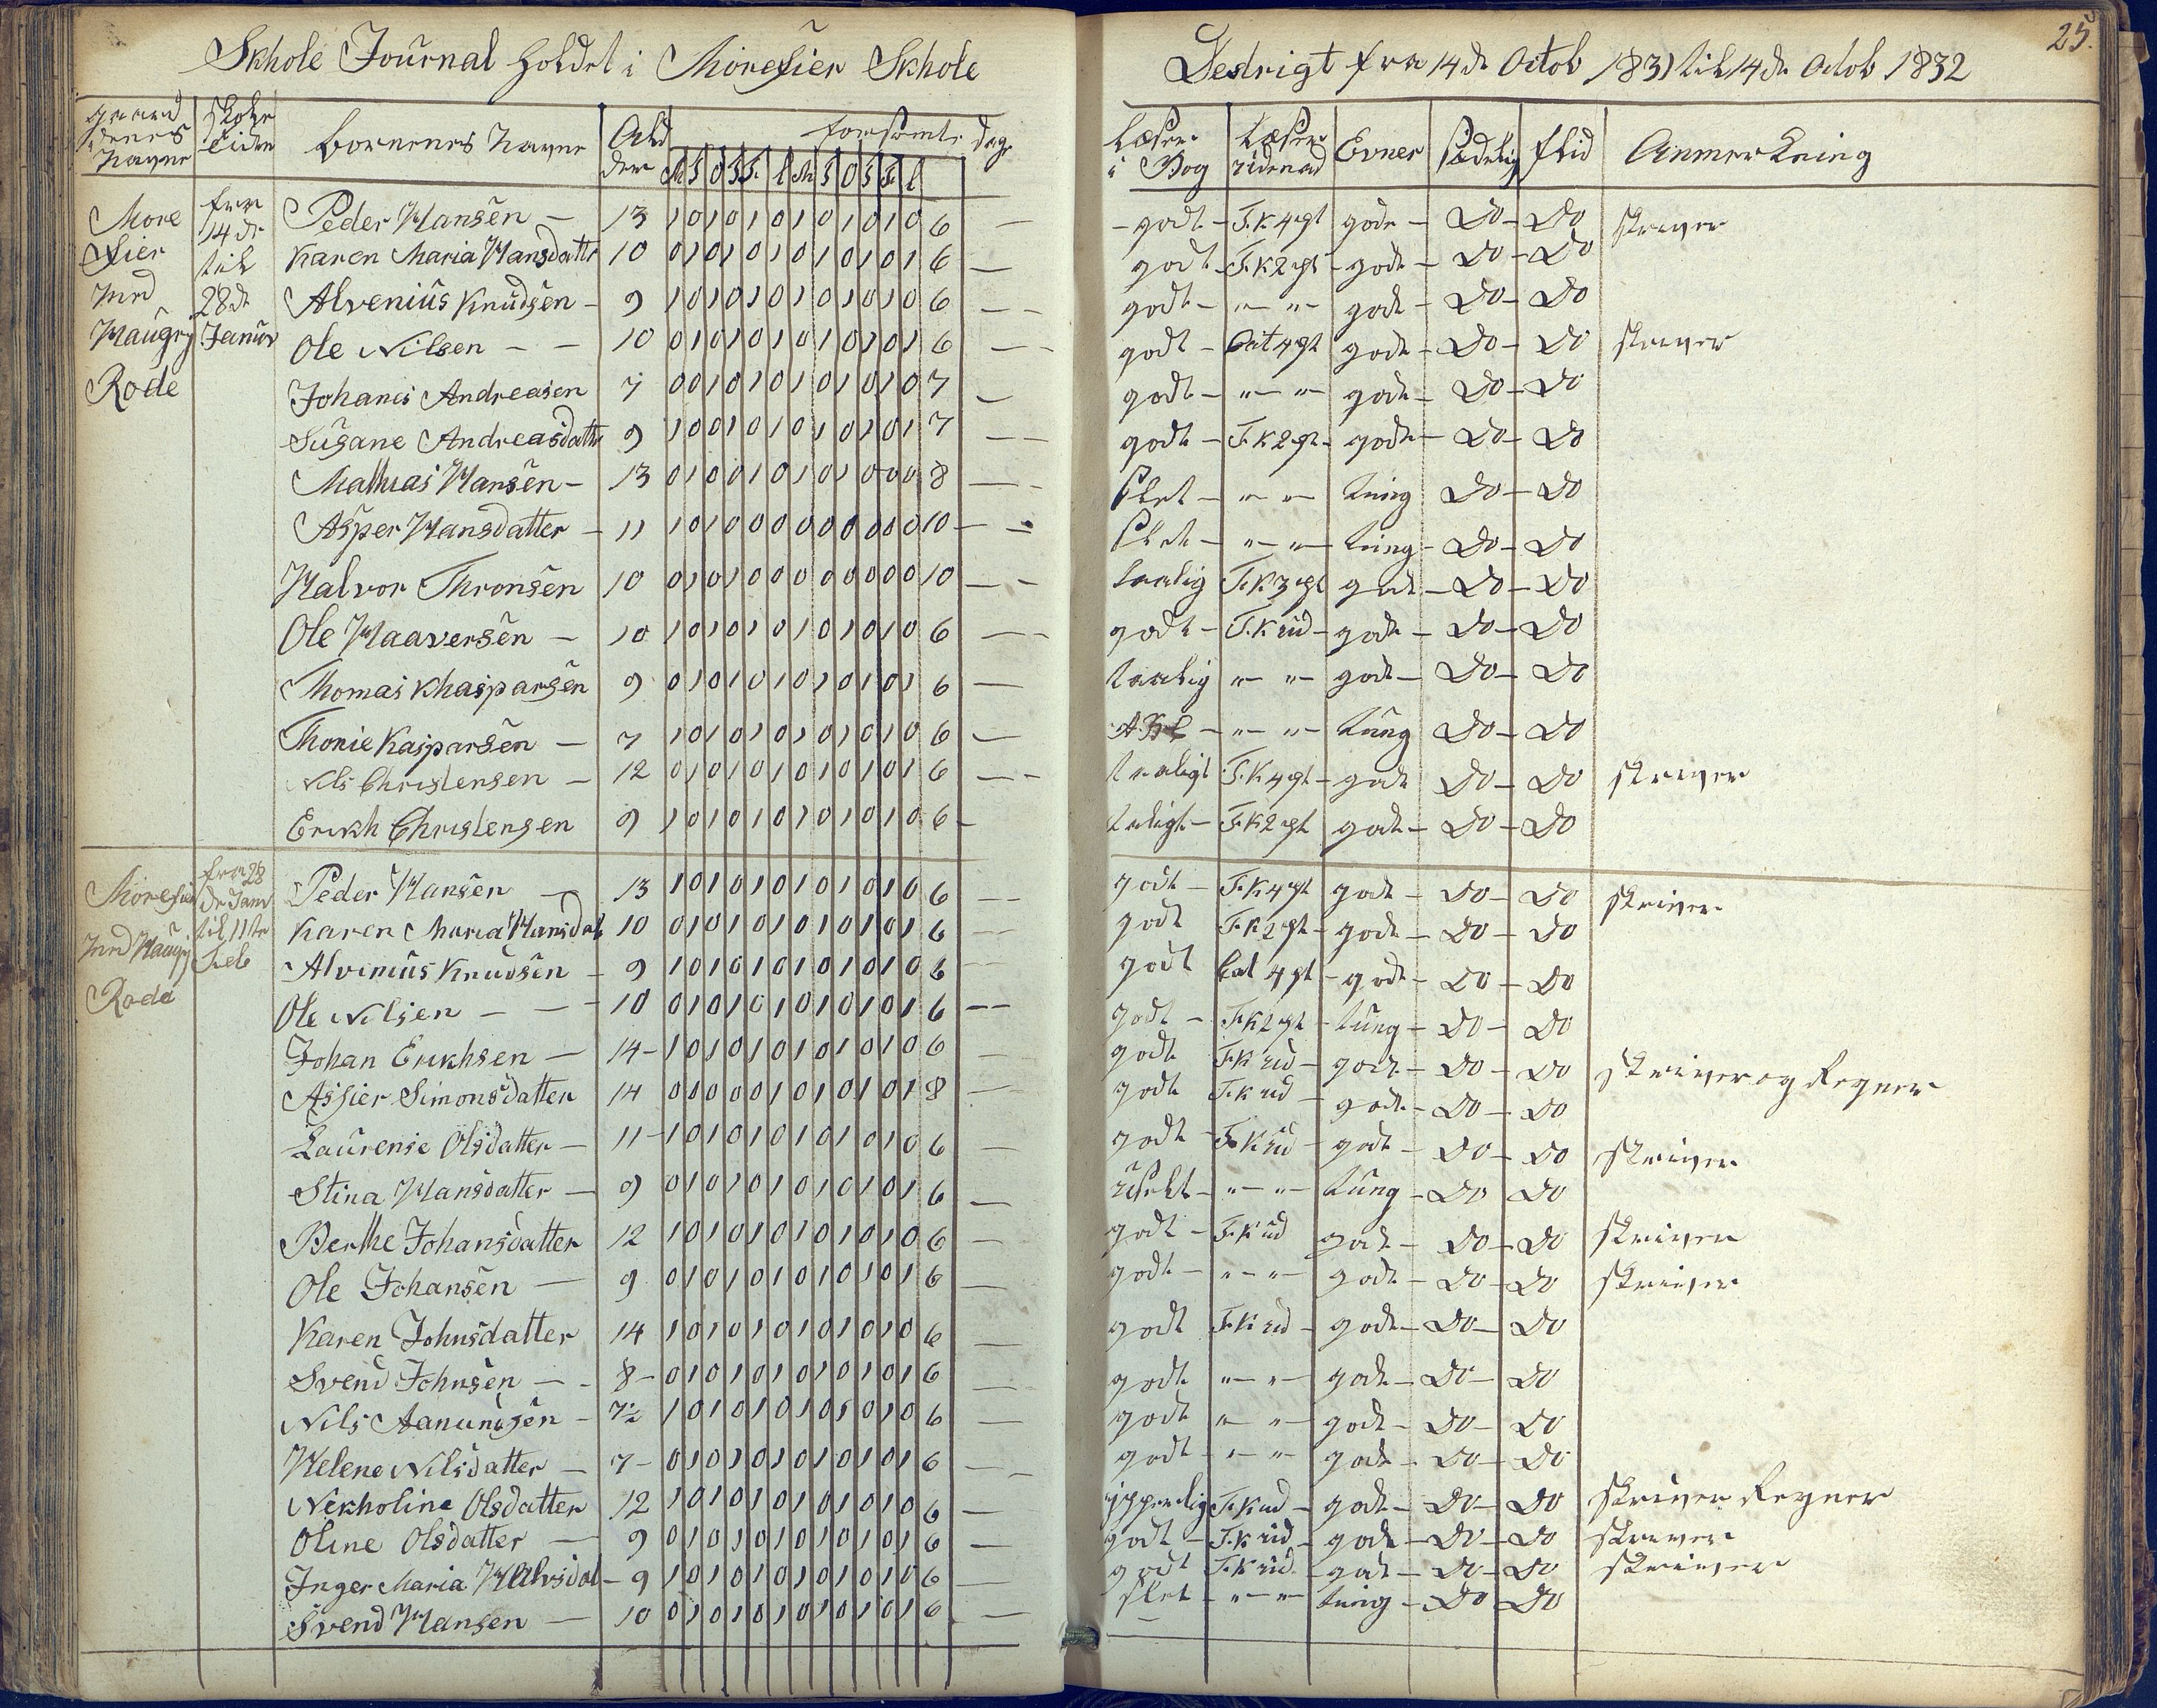 Skhole Journal holdet i Morefier Skhole
Destrigt fra 14de Octob 1831 til 14de Octob 1832
25.
gaardenes Navne
Skole tiden
Børnenes Navne
Alder
forsømte dage
M T O T F L M T O T F L
Læser i Bog
Læser udenad
Evner
Sædelig
flid
Anmerkning
Morefier med Haugrj Rode
fra 14de til 28de Januar
Peder Hansen — 13 1 0 1 0 1 0 1 0 1 0 1 0 6 — godt — F.K 4 pt gode — Do — Do skriver
Karen Maria Hansdattr 10 0 1 0 1 0 1 0 1 0 1 0 1 6 — godt — F.K 2 pt — gode — Do — Do
Alvenius Knudsen — 9 1 0 1 0 1 0 1 0 1 0 1 0 6 — godt — " — " — gode — Do — Do
Ole Nilsen — — 10 0 1 0 1 0 1 0 1 0 1 0 1 6 — godt — Cat 4 pt gode — Do — Do skriver
Johanis Andreasen 7 0 0 1 0 1 0 1 0 1 0 1 0 7 — godt — " — " gode — Do — Do
Susane Andreasdattr 9 1 0 0 1 0 1 0 1 0 1 0 1 7 — godt — F.K 2 pt — gode — Do — Do
Mathias Hansen — 13 0 1 0 0 1 0 1 0 1 0 0 0 8 — Slet — " — " — tung Do — Do
Asper Hansdatter — 11 1 0 1 0 0 0 0 0 0 0 0 0 10 — Slet — " — " — tung — Do — Do
Halvor Thronsen 10 0 1 0 1 0 0 0 0 0 0 0 0 10 — taalig F.K 3 pt gode — Do — Do
Ole Haaversen — 10 1 0 1 0 1 0 1 0 1 0 1 0 6 — godt — F.K ud — gode — Do — Do
Thomas Khasparsen 9 0 1 0 1 0 1 0 1 0 1 0 1 6 — taalig " — " — gode — Do — Do
Thonie Kasparsen — 7 1 0 1 0 1 0 1 0 1 0 1 0 6 — — " — " — tung Do — Do
Nils Christensen — 12 0 1 0 1 0 1 0 1 0 1 0 1 6 — taaligt F.K 4 pt — gode Do — Do skriver
Erikh Christensen 9 1 0 1 0 1 0 1 0 1 0 1 0 6 — taligt — F.K 2 pt gode — Do — Do
Morefier med Haugrj Rode
fra 28de Janr til 11te Feb
Peder Hansen — 13 1 0 1 0 1 0 1 0 1 0 1 0 6 — godt — F.K 4 pt gode — Do — Do skriver
Karen Maria Hansdat 10 0 1 0 1 0 1 0 1 0 1 0 1 6 — godt F.K 2 pt — gode — Do — Do
Alvinius Knudsen — 9 1 0 1 0 1 0 1 0 1 0 1 0 6 — godt Cat 4 pt — gode — Do — Do
Ole Nilsen — — 10 0 1 0 1 0 1 0 1 0 1 0 1 6 — godt — F.K 2 pt — tung — Do — Do
Johan Erikhsen — 14 — 1 0 1 0 1 0 1 0 1 0 1 0 6 — godt F.K ud — gode — Do — Do skriver og Regner
Assier Simonsdatter 14 0 0 0 0 0 1 0 1 0 1 0 1 8 — godt F.K ud — gode — Do — Do
Laurense Olsdatter — 11 — 1 0 1 0 1 0 1 0 1 0 1 0 6 — godt — F.K ud — gode — Do — Do skriver
Stina Hansdatter — 9 0 1 0 1 0 1 0 1 0 1 0 1 6 — — " — " — tung — Do Do
Berthe Johansdatter 12 1 0 1 0 1 0 1 0 1 0 1 0 6 — godt — F.K ud gode — Do — Do skriver
Ole Johansen — 9 0 1 0 1 0 1 0 1 0 1 0 1 6 — godt — " — " — gode — Do — Do skriver
Karen Johnsdatter 14 1 0 1 0 1 0 1 0 1 0 1 0 6 — godt F.K ud — gode — Do — Do
Svend Johnsen — 8 — 0 1 0 1 0 1 0 1 0 1 0 1 6 — godt " — " — gode — Do — Do
Nils Aanundsen — 7½ 1 0 1 0 1 0 1 0 1 0 1 0 6 — godt " — " — gode — Do — Do
Helene Nilsdatter — 7 — 0 1 0 1 0 1 0 1 0 1 0 1 6 — godt — " — " — gode — Do — Do
Nikholine Olsdatter 12 1 0 1 0 1 0 1 0 1 0 1 0 6 — ypperlig F.K ud — gode — Do — Do skriver Regner
Oline Olsdatter — 9 0 1 0 1 0 1 0 1 0 1 0 1 6 — godt — F.K ud — gode — Do — Do skriver
Inger Maria — 9 1 0 1 0 1 0 1 0 1 0 1 0 6 — godt F.K ud — gode — Do — Do skriver
Svend Hansen — 10 0 1 0 1 0 1 0 1 0 1 0 1 6 — slet — " — " — tung — Do Do